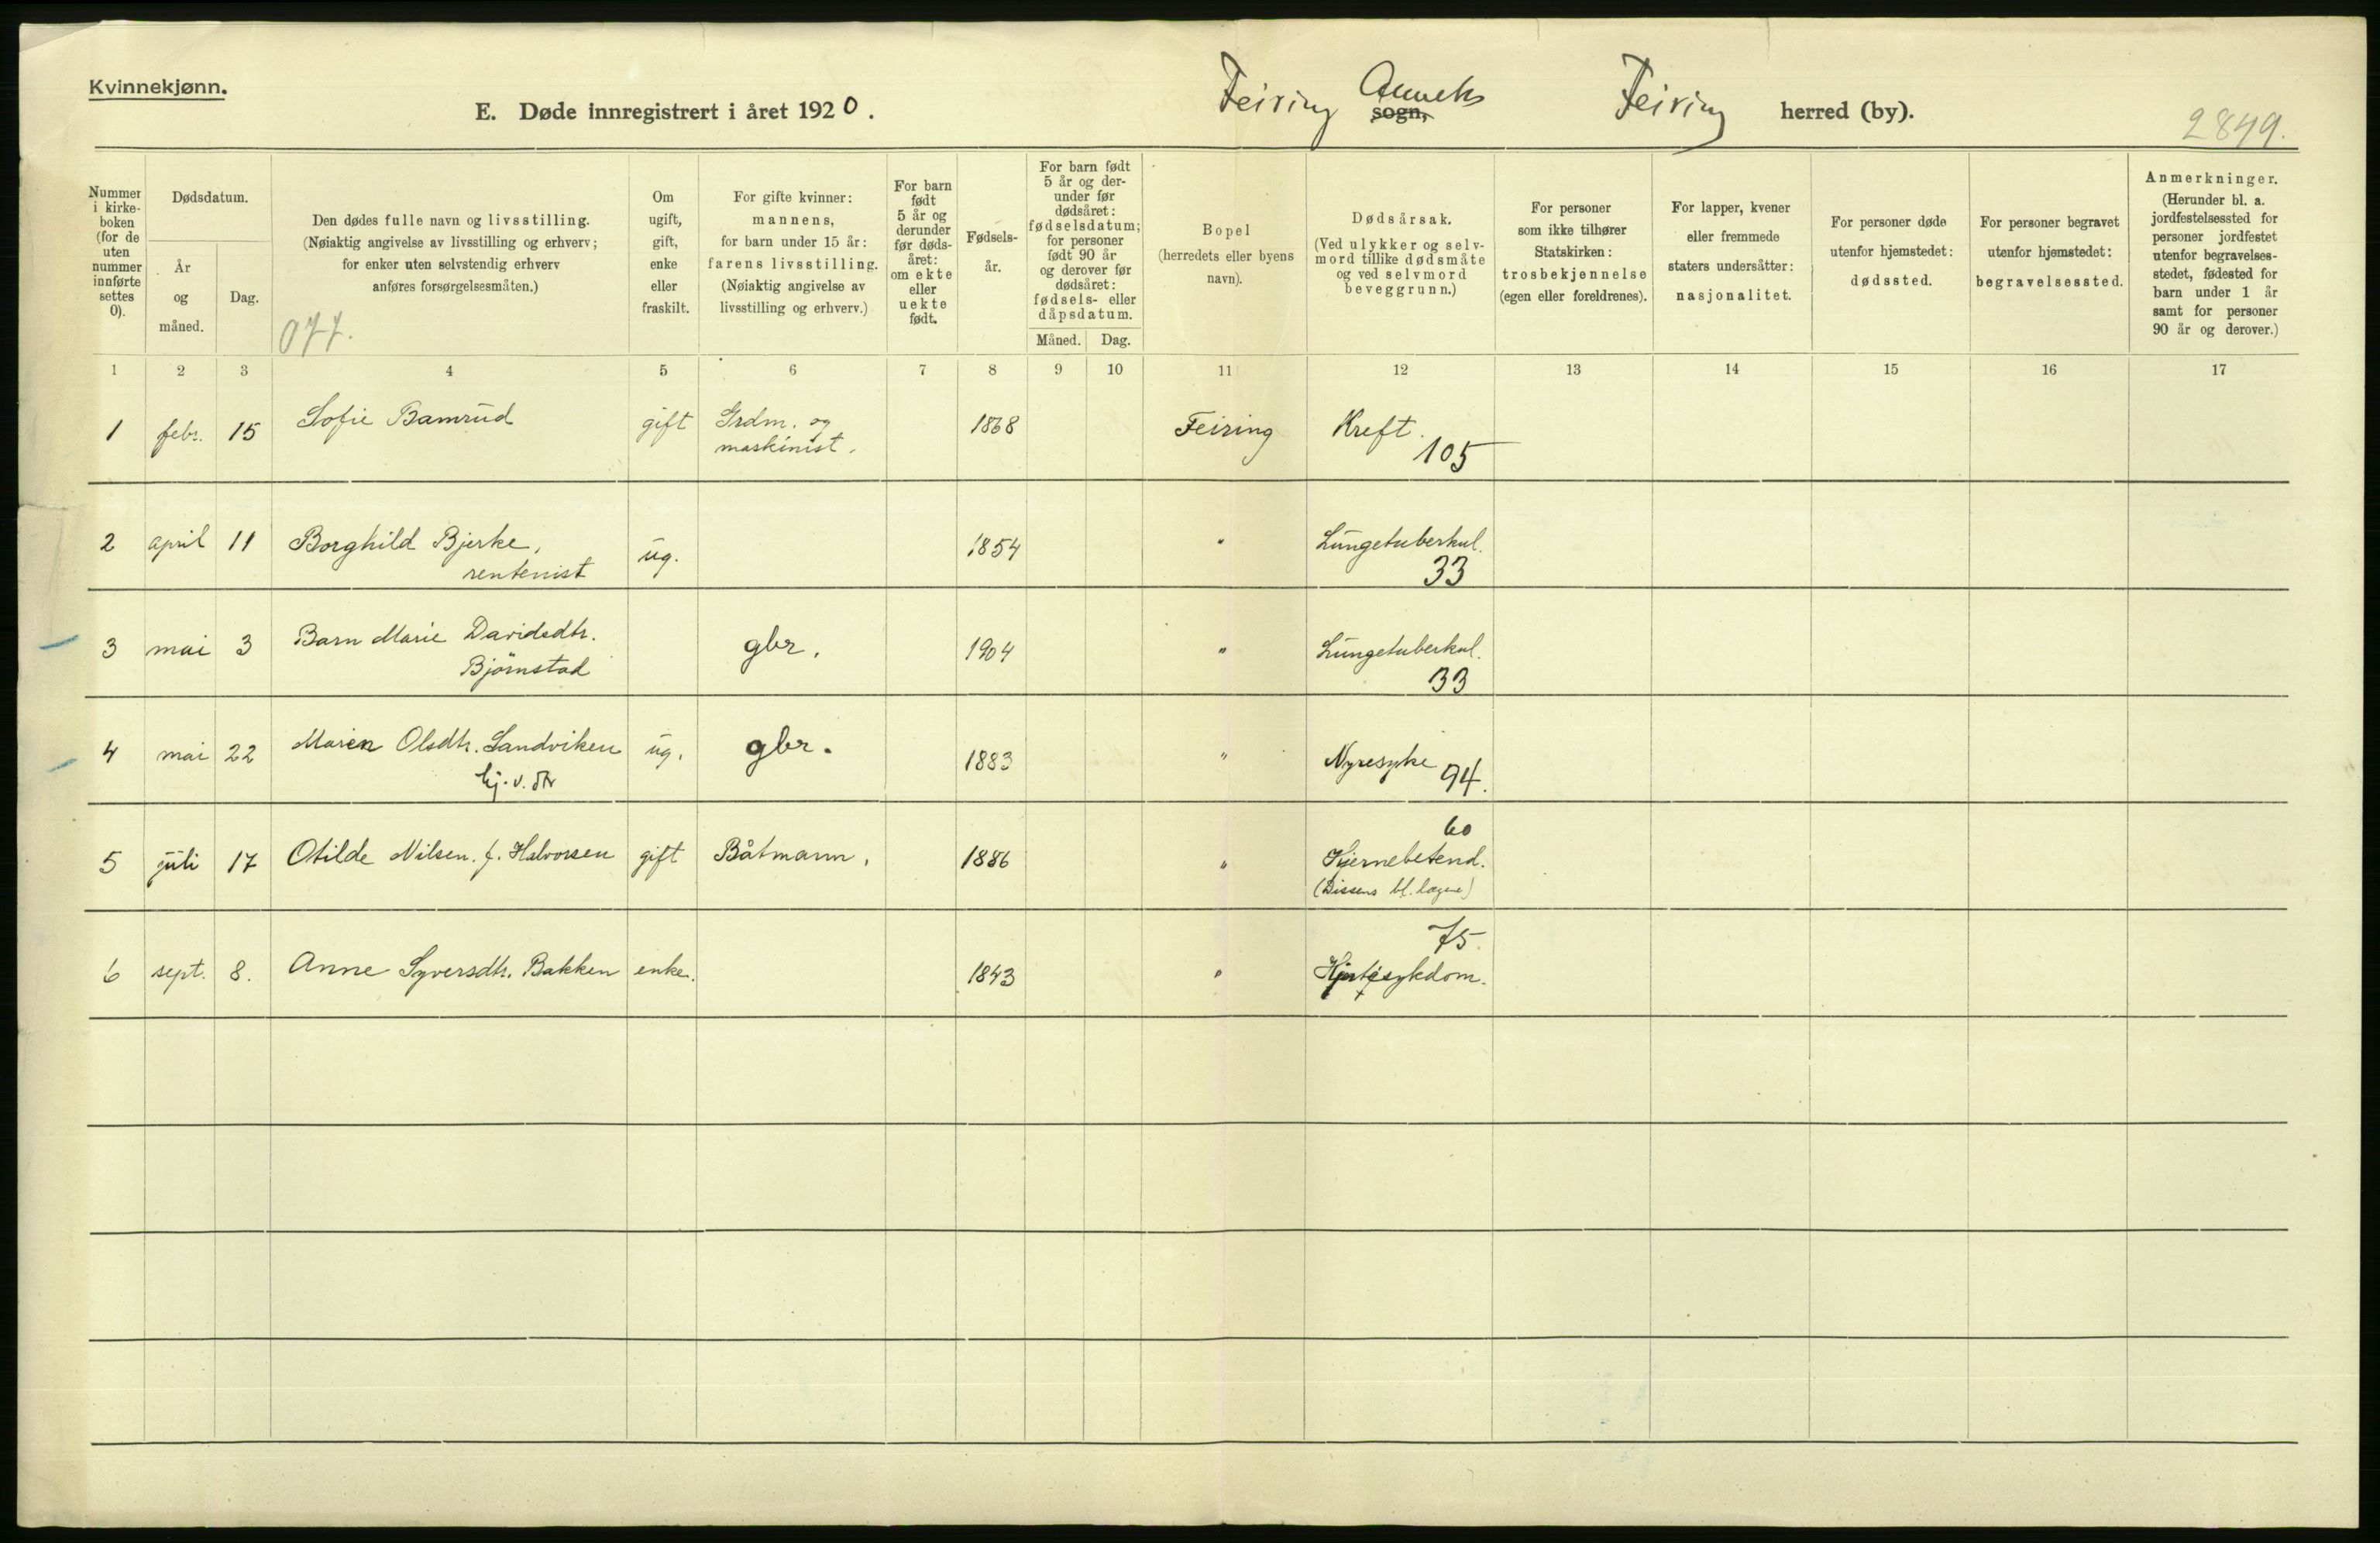 Kvinnekjønn.
E. Døde innregistrert i året 1920.
Feiring Anneks sogn,
Feiring herred (by).
2849.
Nummer i kirkeboken (for de uten nummer innførte settes 0).
Dødsdatum.
År og måned.
Dag.
Den dødes fulle navn og livsstilling.
(Nøiaktig angivelse av livsstilling og erhverv;
for enker uten selvstendig erhverv
anføres forsørgelsesmåten.)
077.
Om ugift, gift, enke eller fraskilt.
For gifte kvinner:
mannens,
for barn under 15 år:
farens livsstilling.
(Nøiaktig angivelse av
livsstilling og erhverv.)
For barn født 5 år og derunder før dødsåret: om ekte eller uekte født.
Fødselsår.
For barn født 5 år og derunder før dødsåret: fødselsdatum; for personer født 90 år og derover før dødsåret: fødsels- eller dåpsdatum.
Måned. Dag.
Bopel
(herredets eller byens
navn).
Dødsårsak.
(Ved ulykker og selv-
mord tillike dødsmåte
og ved selvmord
beveggrunn.)
For personer
som ikke tilhører
Statskirken:
trosbekjennelse
(egen eller foreldrenes).
For lapper, kvener
eller fremmede
staters undersåtter:
nasjonalitet.
For personer døde
utenfor hjemstedet:
dødssted.
For personer begravet
utenfor hjemstedet:
begravelsessted.
Anmerkninger.
(Herunder bl. a.
jordfestelsessted for
personer jordfestet
utenfor begravelses-
stedet, fødested for
barn under 1 år
samt for personer
90 år og derover.)
1 2 3 4 5 6 7 8 9 10 11 12 13 14 15 16 17
1 febr. 15 Sofie Bamrud gift Grdm. og 1868 Feiring Kreft.
maskinist.
105
2 april 11 Borghild Bjerke, ug. 1854 " Lungetuberkul.
rentenist
33
3 mai 3 Barn Marie Davidsdtr. gbr. 1904 " Lungetuberkul.
Bjørnstad
33
4 mai 22 Maren Olsdtr. Sandviken ug. gbr. 1883 " Nyresyke 94.
hj. v. dtr
60
5 juli 17 Otilde Nilsen f. Halvorsen gift Båtmann. 1886 " Hjernebetend.
75.
6 sept. 8. Anne Syversdtr. Bakken enke. 1843 " Hjertesykdom.